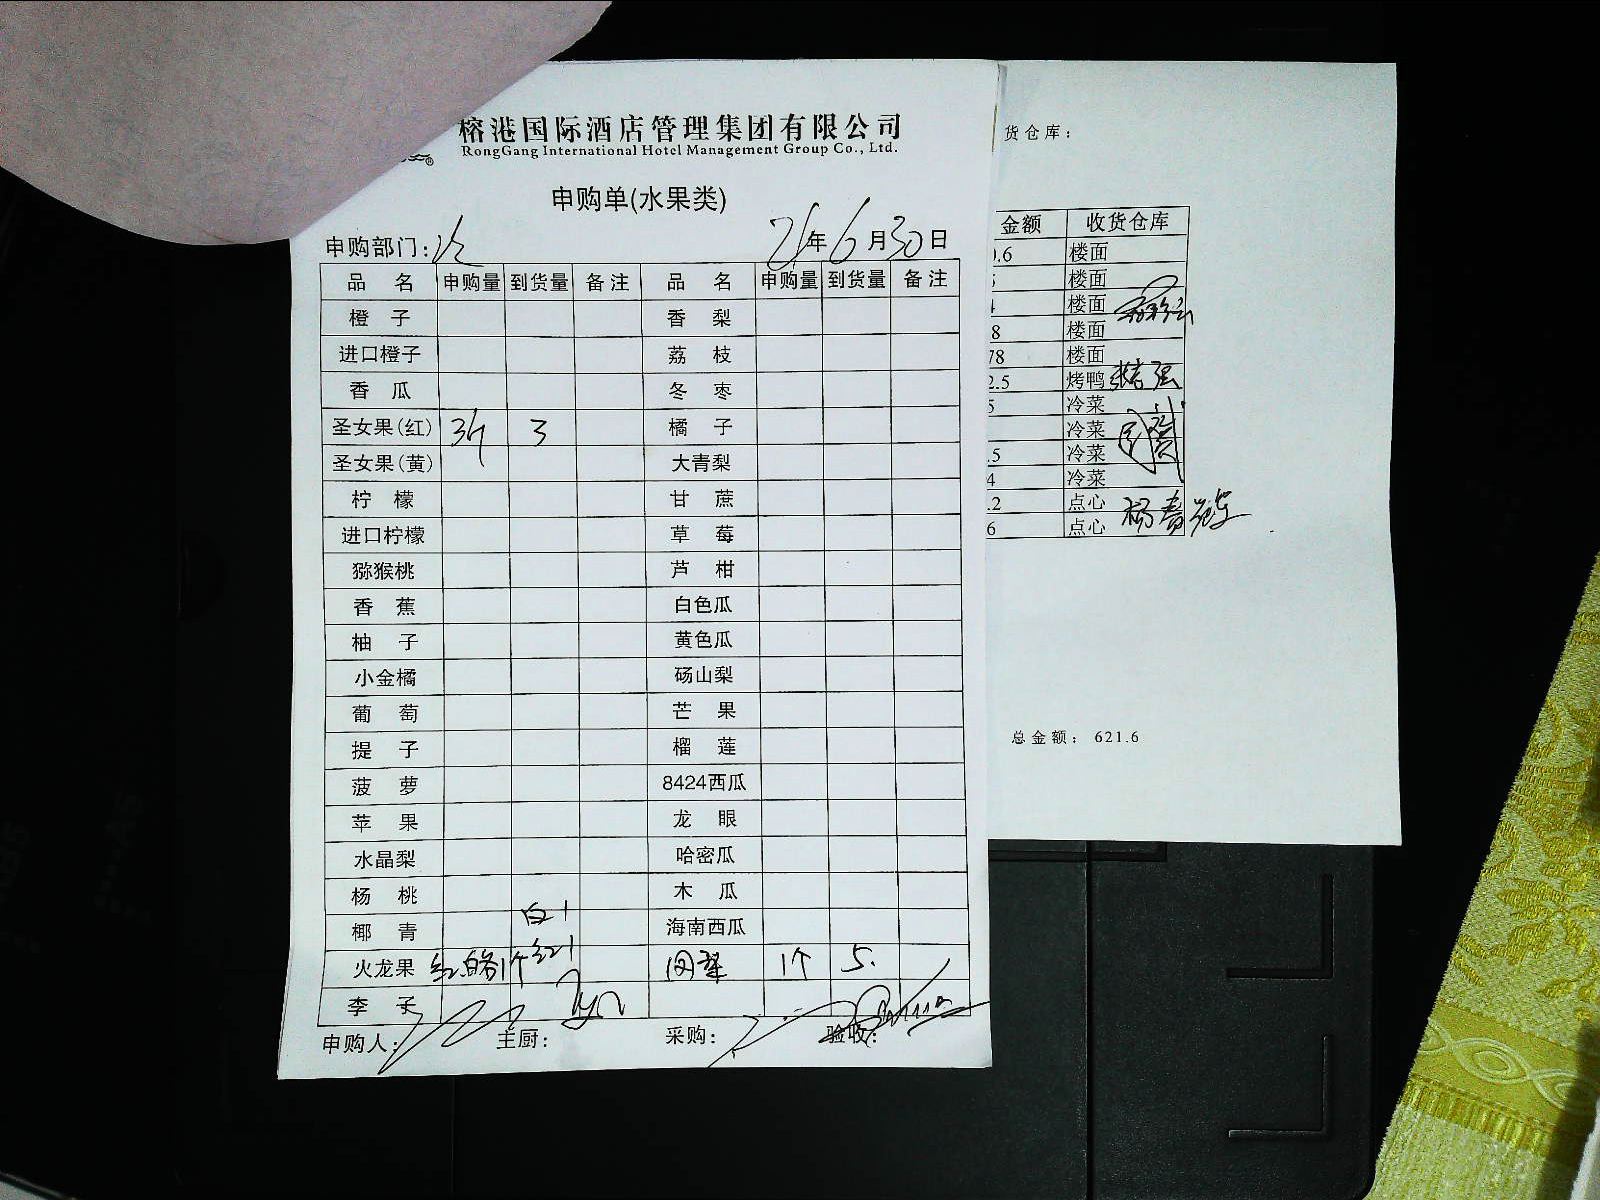 榕港国际酒店管理集团有限公司
RongGang International Hotel Management Group Co., Ltd.
申购单(水果类)
申购部门: 21年6月30日
品名 申购量 到货量 备注 品名 申购量 到货量 备注
橙子 香梨
进口橙子 荔枝
香瓜 冬枣
圣女果(红) 3斤 3 橘子
圣女果(黄) 大青梨
柠檬 甘蔗
进口柠檬 草莓
猕猴桃 芦柑
香蕉 白色瓜
柚子 黄色瓜
小金橘 砀山梨
葡萄 芒果
提子 榴莲
菠萝 8424西瓜
苹果 龙眼
水晶梨 哈密瓜
杨桃 木瓜
椰青 白1 海南西瓜
火龙果 红.白各1个 红1 1个 5.
李子
申购人: 主厨: 采购: 验收:
货仓库:
金额 收货仓库
.6 楼面
5 楼面
4 楼面
8 楼面
78 楼面
2.5 烤鸭
5 冷菜
冷菜
.5 冷菜
4 冷菜
.2 点心
6 点心
总金额: 621.6